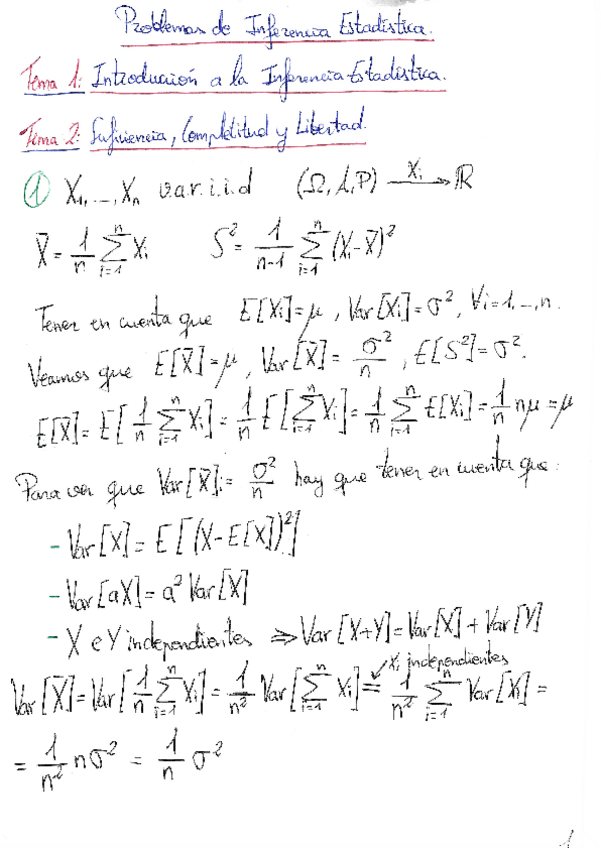 Problemas de Inferencia Estadística.
Tema 1: Introducción a la Inferencia Estadística.
Tema 2: Suficiencia, Completitud y Libertad.
① X₁, ..., Xₙ v.a.r.i.i.d (Ω, A, P) —Xᵢ→ ℝ
X̄ = 1/n ∑ᵢ₌₁ⁿ Xᵢ S² = 1/(n-1) ∑ᵢ₌₁ⁿ (Xᵢ-X̄)²
Tener en cuenta que E[Xᵢ]=μ, Var[Xᵢ]=σ², ∀i=1,..,n.
Veamos que E[X̄]=μ, Var[X̄]= σ²/n, E[S²]=σ².
E[X̄]= E[1/n ∑ᵢ₌₁ⁿ Xᵢ]= 1/n E[∑ᵢ₌₁ⁿ Xᵢ]= 1/n ∑ᵢ₌₁ⁿ E[Xᵢ]= 1/n nμ = μ
Para ver que Var[X̄]= σ²/n hay que tener en cuenta que:
- Var[X]= E[(X-E[X])²]
- Var[aX]= a² Var[X]
- X e Y independientes ⇒ Var[X+Y]=Var[X]+Var[Y]
Xᵢ independientes
Var[X̄]=Var[1/n ∑ᵢ₌₁ⁿ Xᵢ]= 1/n² Var[∑ᵢ₌₁ⁿ Xᵢ]= 1/n² ∑ᵢ₌₁ⁿ Var[Xᵢ] =
= 1/n² nσ² = 1/n σ²
1